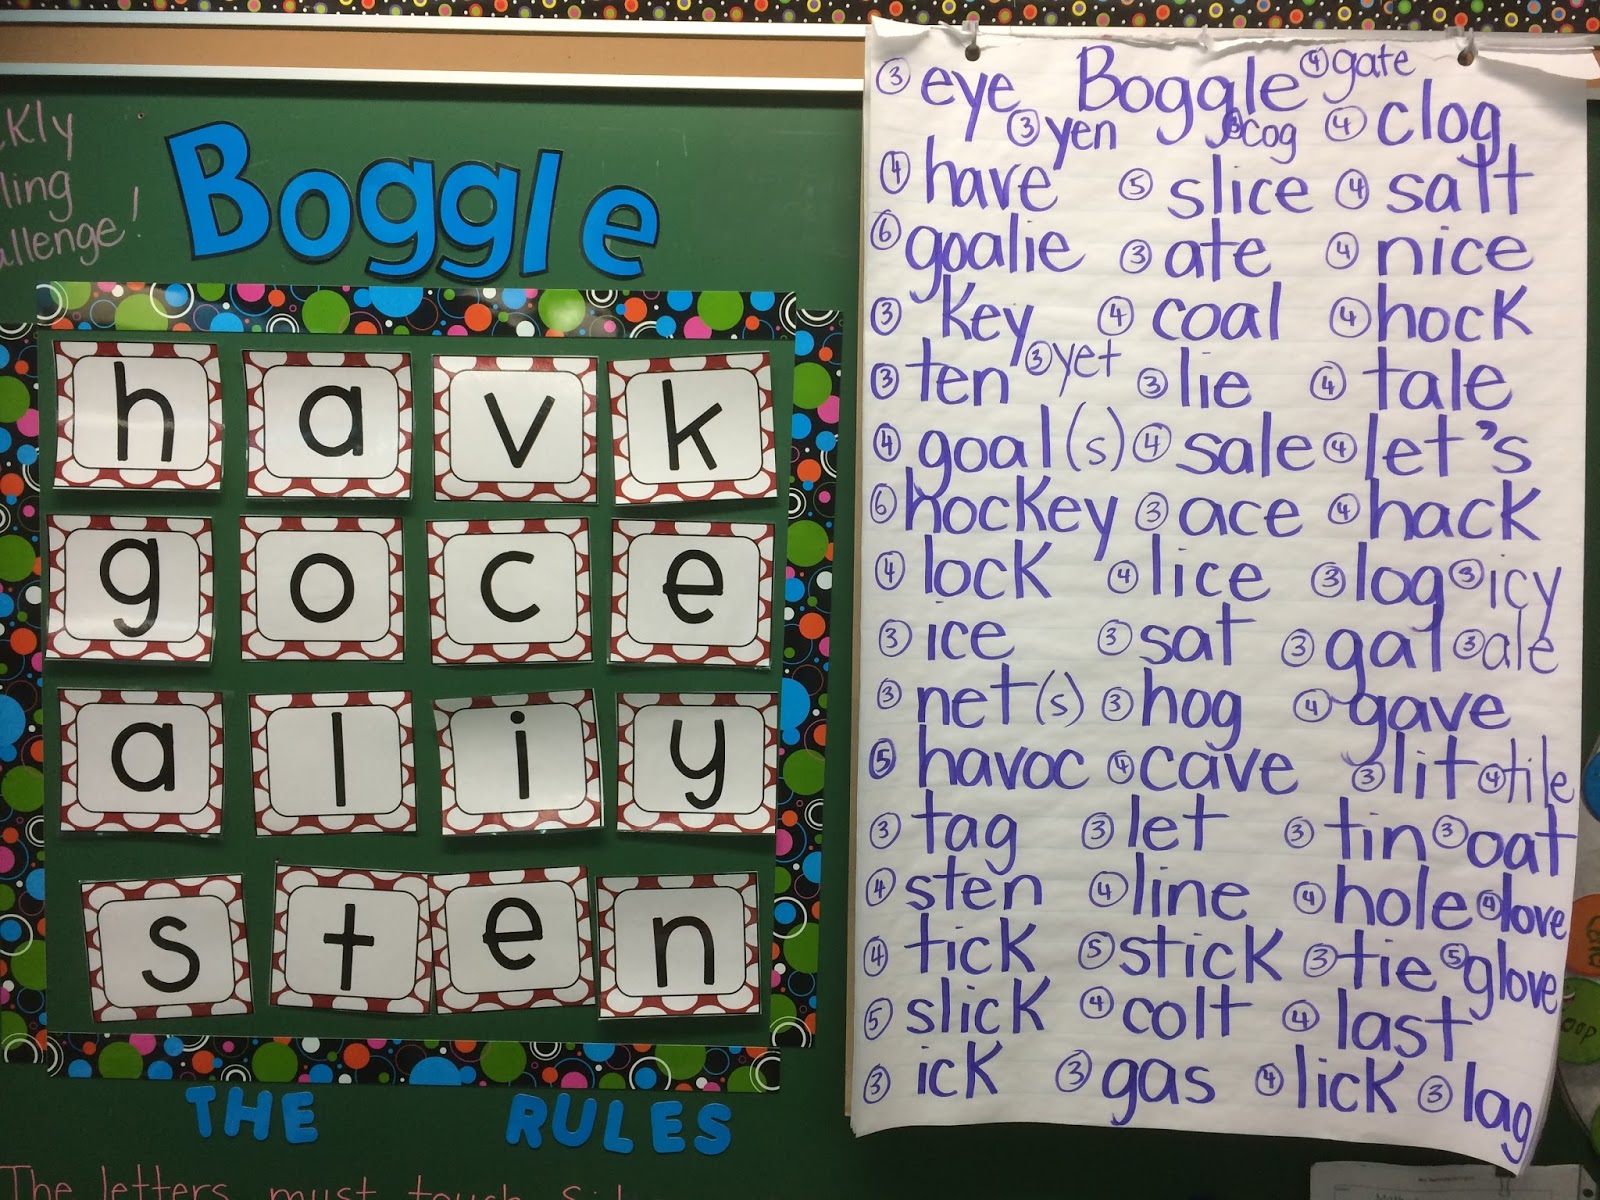 Boggle
h a v k
g o c e
a l i y
s t e n
THE RULES
The letters must touch
③ eye Boggle ④ gate
③ yen ③ cog ④ clog
④ have ⑤ slice ④ salt
⑥ goalie ③ ate ④ nice
③ key ④ coal ④ hock
③ ten ③ yet ③ lie ④ tale
④ goal(s) ④ sale ④ let's
⑥ hockey ③ ace ④ hack
④ lock ④ lice ③ log ③ icy
③ ice ③ sat ③ gal ③ ale
③ net(s) ③ hog ④ gave
⑤ havoc ④ cave ③ lit ④ tile
③ tag ③ let ③ tin ③ oat
④ sten ④ line ④ hole ④ love
④ tick ⑤ stick ③ tie ⑤ glove
⑤ slick ④ colt ④ last
③ ick ③ gas ④ lick ③ lag